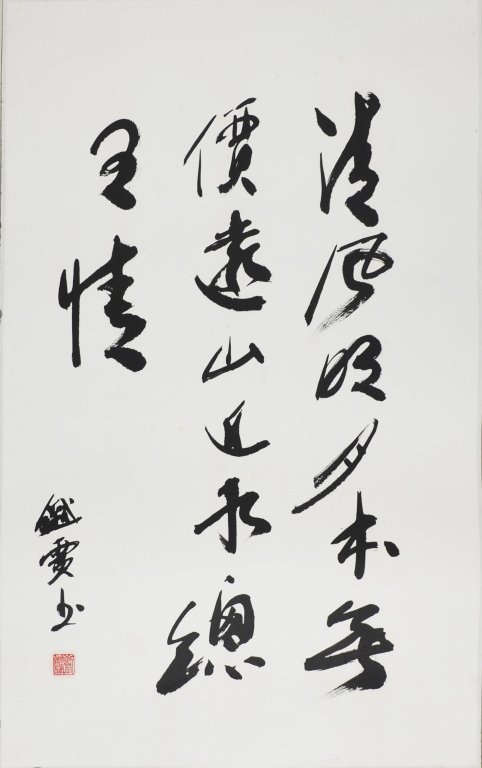 清風明月本無
價遠山近水總
有情